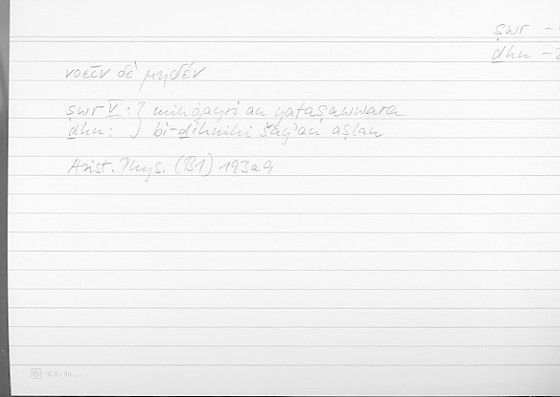 ṣwr -
ḏhn -
νοεῖν δὲ μηδέν
ṣwr V : } min ġayri an yataṣawwara
ḏhn : } bi-ḏihnihi šayʾan aṣlan
Arist. Phys. (B1) 193a9